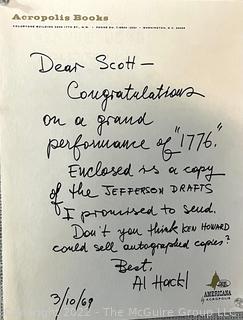 Acropolis Books
COLORTONE BUILDING 2400 17TH ST., N.W. • WASHINGTON, D.C. 20009
Dear Scott—
Congratulations
on a grand
performance of "1776."
Enclosed is a copy
of the JEFFERSON DRAFTS
I promised to send.
Don't you think KEN HOWARD
could sell autographed copies?
Best,
Al Hackl
3/10/69
AMERICANA
ACROPOLIS
Copyright 2022 - The McGuire Group LLC